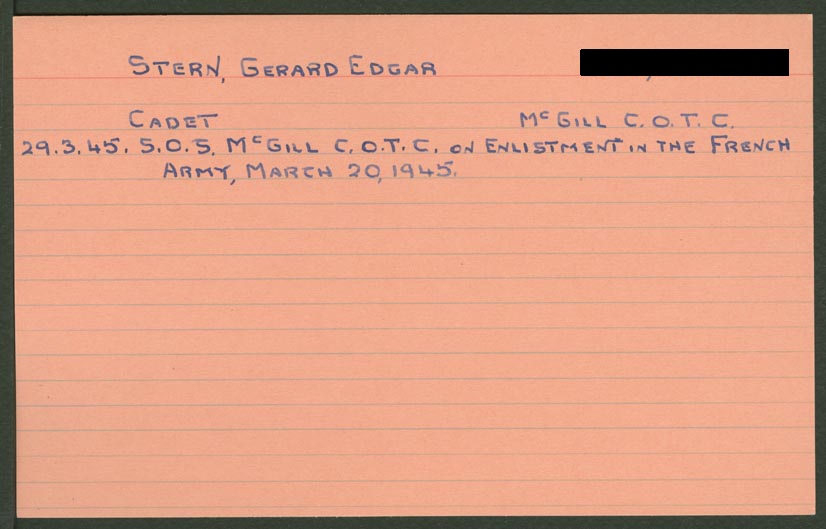 STERN, GERARD EDGAR
CADET McGILL C.O.T.C.
29.3.45. S.O.S. McGILL C.O.T.C. ON ENLISTMENT IN THE FRENCH
ARMY, MARCH 20, 1945.